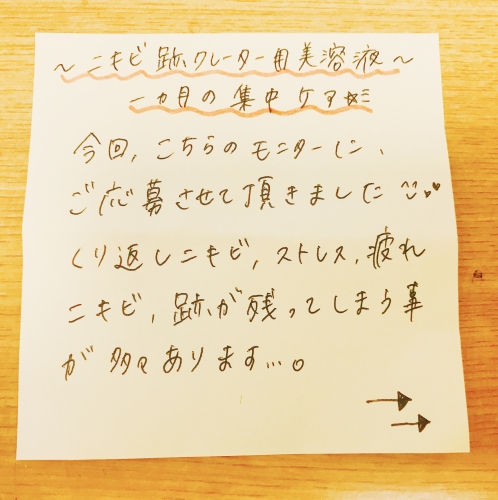 ～ニキビ跡クレーター用美溶液～
一ヵ月の集中ケア☆ミ
今回、こちらのモニターに、
ご応募させて頂きました
くり返しニキビ、ストレス、疲れ
ニキビ、跡が残ってしまう事
が多々あります…。
→
→